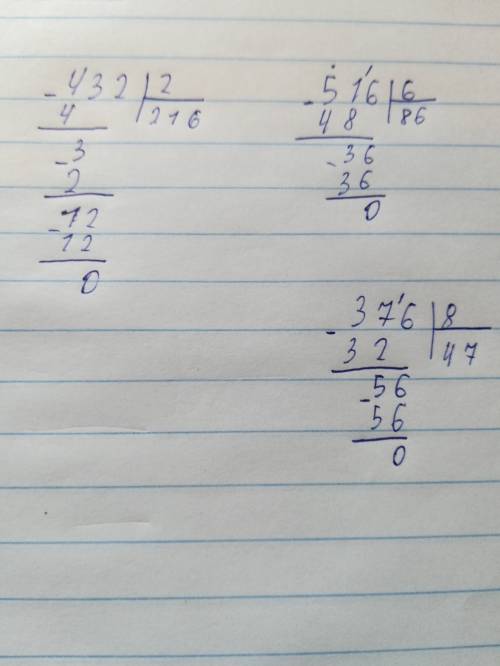 - 432 | 2
4 | 216
- 3
2
- 12
12
0
- 516 | 6
48 | 86
- 36
36
0
- 376 | 8
32 | 47
- 56
56
0